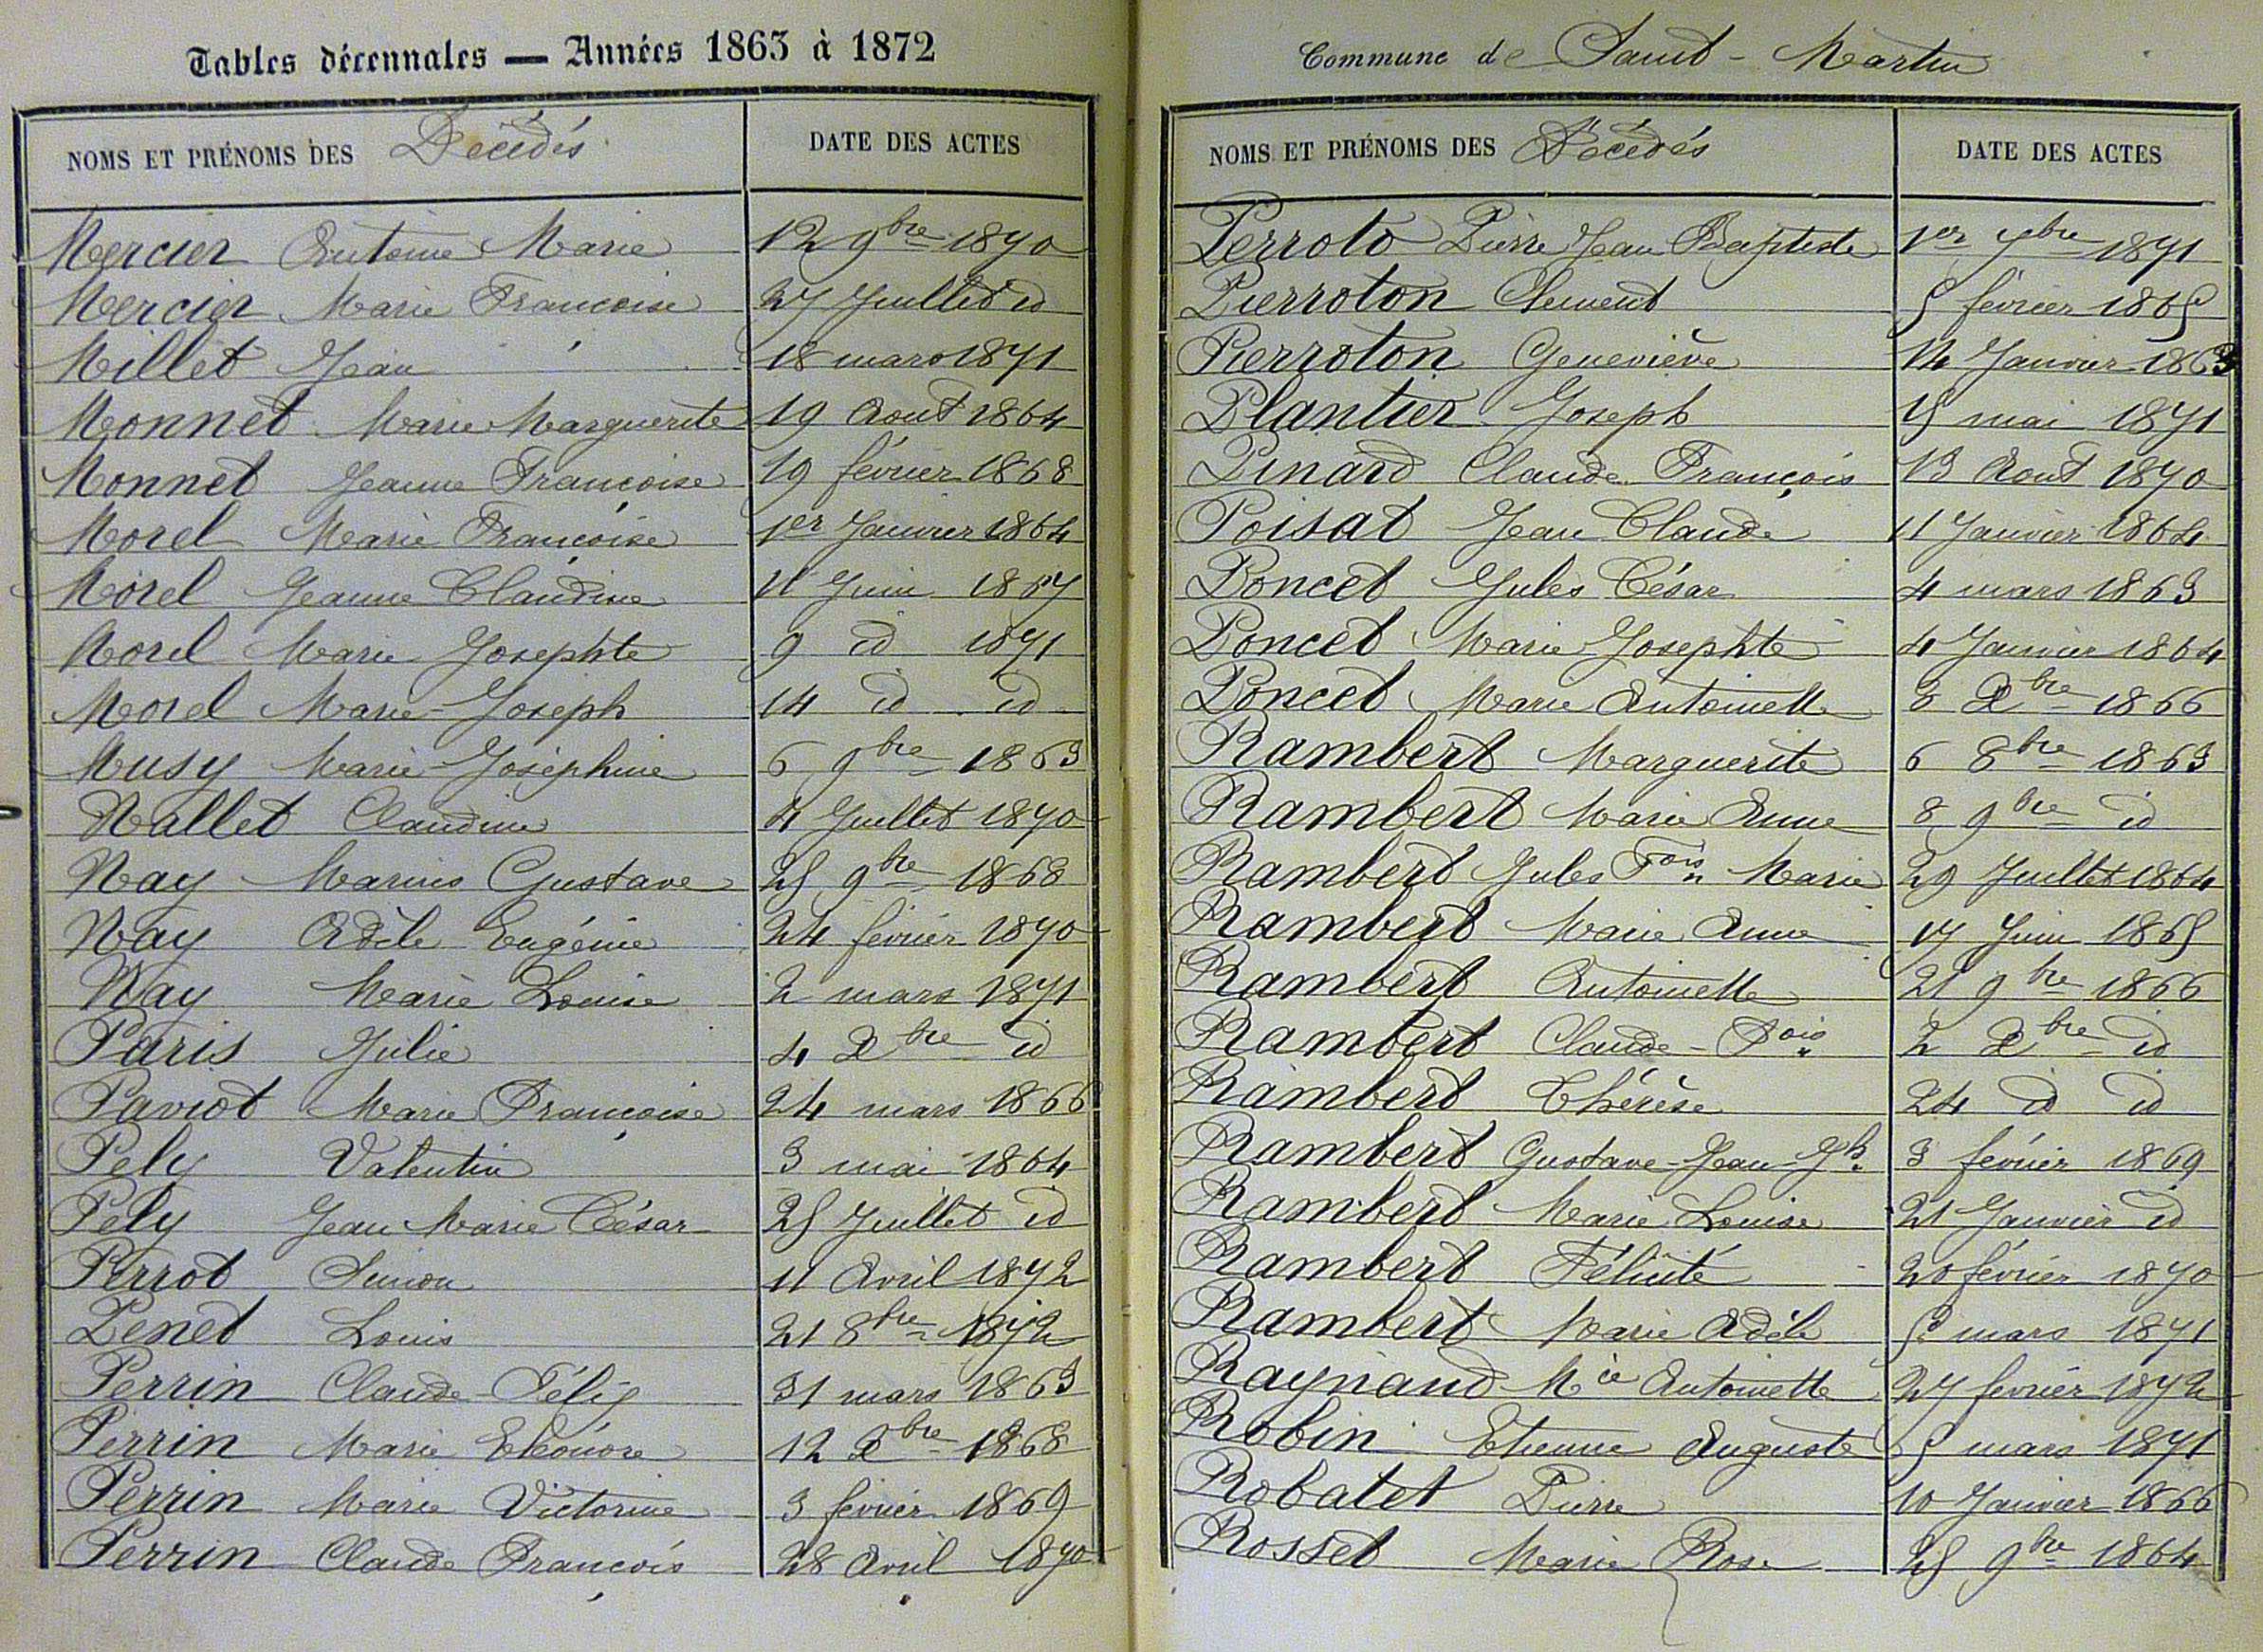 Tables décennales — Années 1863 à 1872
NOMS ET PRÉNOMS DES Décédés DATE DES ACTES
Mercier Antoine Marie 12 9bre 1870
Mercier Marie Francoise 27 Juillet id
Millet Jean 18 mars 1871
Monnet Marie Marguerite 19 Aout 1864
Monnet Jeanne Françoise 19 février 1868
Morel Marie Françoise 1er Janvier 1864
Morel Jeanne Claudine 11 Juin 1867
Morel Marie Josephte 9 id 1871
Morel Marie-Joseph 14 id id
Musy Marie Joséphine 6 9bre 1863
Nallet Claudine 4 Juillet 1870
Nay Marius Gustave 25 9bre 1868
Nay Adèle Eugénie 24 février 1870
Nay Marie Louise 2 mars 1871
Paris Julie 4 Xbre id
Paviot Marie Françoise 24 mars 1866
Pely Valentin 3 mai 1864
Pely Jean Marie César 25 Juillet id
Perrot Simon 11 Avril 1872
Penet Louis 21 8bre 1872
Perrin Claude-Félix 31 mars 1863
Perrin Marie Eléonore 12 Xbre 1868
Perrin Marie Victorine 3 février 1869
Perrin Claude François 28 Avril 1870
Commune de Saint-Martin
NOMS ET PRÉNOMS DES Décédés DATE DES ACTES
Perroto Pierre Jean Baptiste 1er 7bre 1871
Pierroton Clement 5 février 1865
Pierroton Geneviève 14 Janvier 1863
Plantier Joseph 15 mai 1871
Pinard Claude François 13 Aout 1870
Poisat Jean Claude 11 Janvier 1864
Poncet Jules César 4 mars 1863
Poncet Marie Josephte 4 Janvier 1864
Poncet Marie Antoinette 3 Xbre 1866
Rambert Marguerite 6 8bre 1863
Rambert Marie Anne 8 9bre id
Rambert Jules Fois Marie 29 Juillet 1864
Rambert Marie Anne 17 Juin 1865
Rambert Antoinette 21 9bre 1866
Rambert Claude-Fois 2 Xbre id
Rambert Thérèse 24 id id
Rambert Gustave-Jean-Jh 3 février 1869
Rambert Marie Louise 21 Janvier id
Rambert Félicité 20 février 1870
Rambert Marie Adèle 5 mars 1871
Raynaud Mie Antoinette 27 février 1872
Robin Etienne Auguste 5 mars 1871
Robatet Pierre 10 Janvier 1866
Rosset Marie Rose 25 9bre 1864